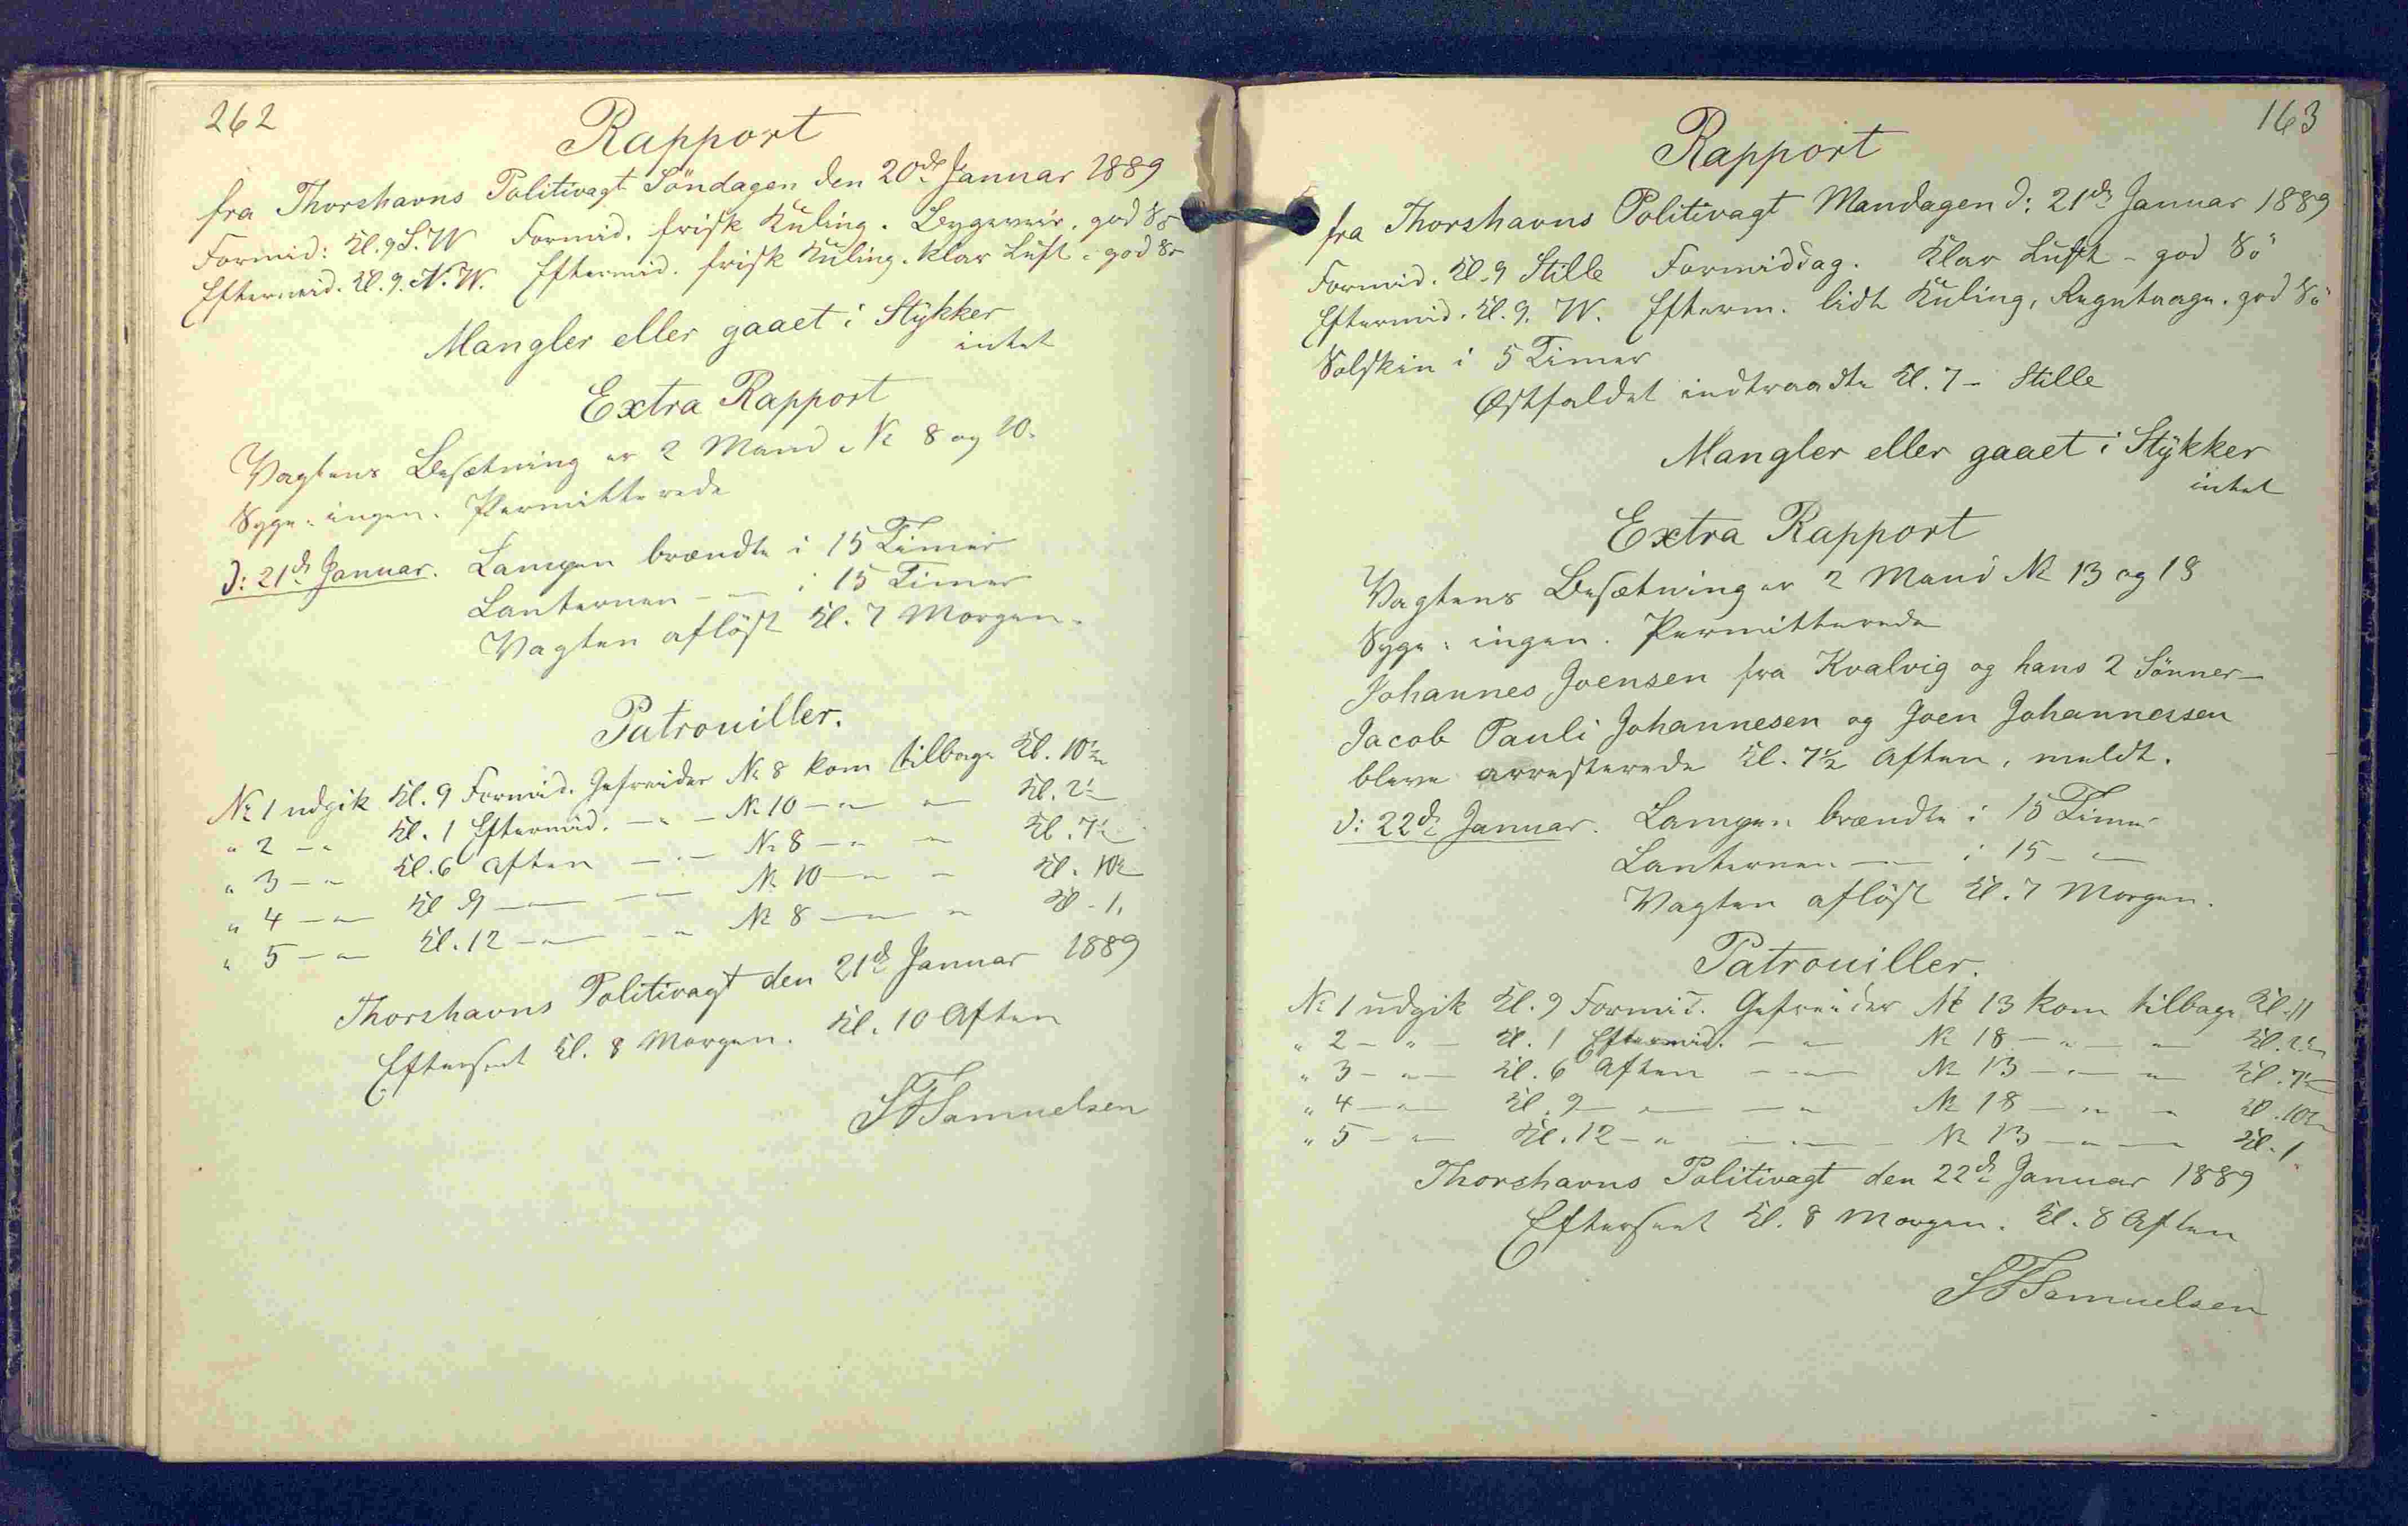 262
Rapport
fra Thorshavns Politivagt Söndagen den 20de Januar 1889
Formid: Kl. 9 S.W Formid. frisk Kuling. Bygeveir, god Sö
Eftermid. Kl. 9. N.W. Eftermid. frisk Kuling. klar Luft - god Sö
Mangler eller gaaet i Stykker
intet
Extra Rapport
Vagtens Besætning er 2 Mand, No 8 og 10.
Syge: ingen. Permitterede
d: 21de Januar. Lampen brændte i 15 Timer
Lanternen - " - i 15 Timer
Vagten aflöst Kl. 7 Morgen.
Patrouiller.
No 1 udgik Kl. 9 Formid. Gefreider No 8 kom tilbage Kl. 10½
" 2 - " Kl. 1 Eftermid. - " - No 10 - " - " - Kl. 2½
" 3 - " Kl. 6 Aften - " - No 8 - " - " - Kl. 7½
" 4 - " - Kl 9 - " - - " - No 10 - " - " - Kl. 10½
" 5 - " - Kl. 12 - " - - " No 8 - " - " Kl. 1.
Thorshavns Politivagt den 21de Januar 1889
Efterseet Kl. 8 Morgen. Kl. 10 Aften
SFSamuelsen
163
Rapport
fra Thorshavns Politivagt Mandagen d: 21de Januar 1889
Formid. Kl. 9 Stille Formiddag. Klar Luft - god Sö
Eftermid. Kl. 9. W. Efterm. lidt Kuling, Regntaage. god Sö
Solskin i 5 Timer
Østfaldet indtraadte Kl. 7 - Stille
Mangler eller gaaet i Stykker
intet
Extra Rapport
Vagtens Besætning er 2 Mand No 13 og 18
Syge: ingen. Permitterede
Johannes Joensen fra Kvalvig og hans 2 Sönner -
Jacob Pauli Johannesen og Joen Johannessen
bleve arresterede Kl. 7½ Aften, meldt.
d: 22de Januar. Lampen brændte i 15 Timer
Lanternen - " - i 15 - " -
Vagten aflöst Kl. 7 Morgen.
Patrouiller.
No 1 udgik Kl. 9 Formid. Gefreider No 13 kom tilbage Kl. 11
" 2 - " - Kl. 1 Eftermid. - " - No 18 - " - " - Kl. 2½
" 3 - " - Kl. 6 Aften - " - No 13 - " - " - Kl. 7½
" 4 - " - Kl. 9 - " - - " No 18 - " - " Kl. 10½
" 5 - " - Kl. 12 - " - " - No 13 - " - " - Kl. 1
Thorshavns Politivagt den 22de Januar 1889
Efterseet Kl. 8 Morgen. Kl. 8 Aften
SFSamuelsen